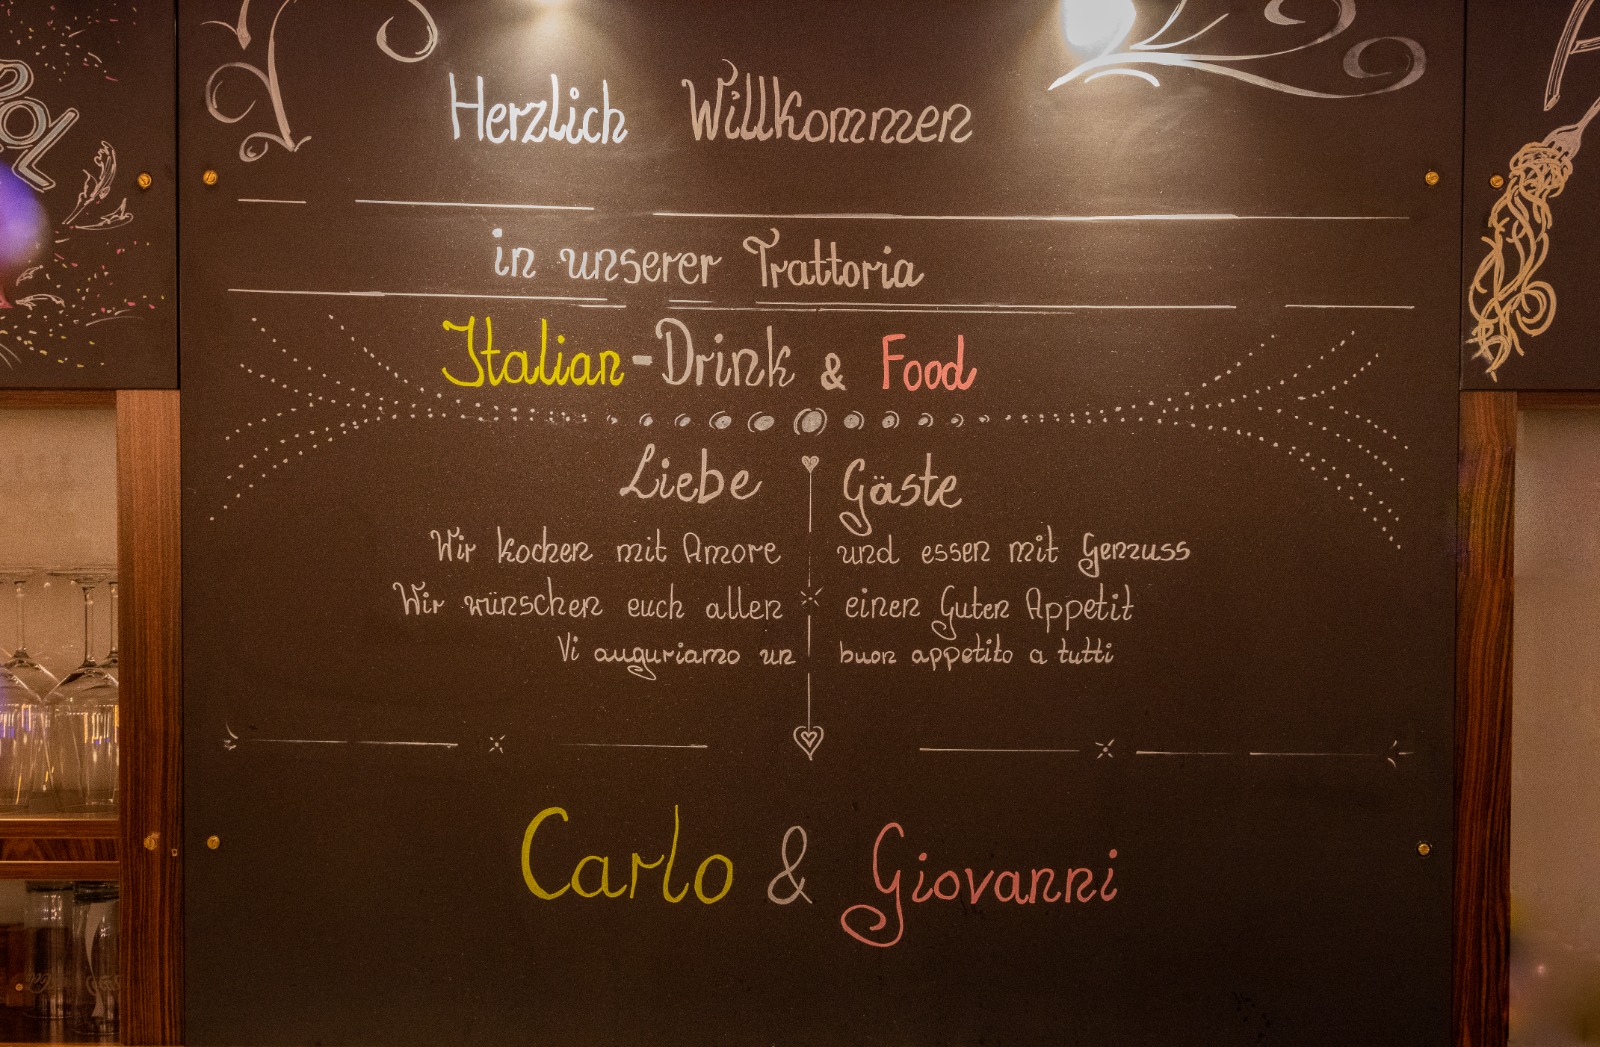 Herzlich Willkommen
in unserer Trattoria
Italian-Drink & Food
Liebe Gäste
Wir kochen mit Amore und essen mit Genuss
Wir wünschen euch allen einen Guten Appetit
Vi auguriamo un buon appetito a tutti
Carlo & Giovanni